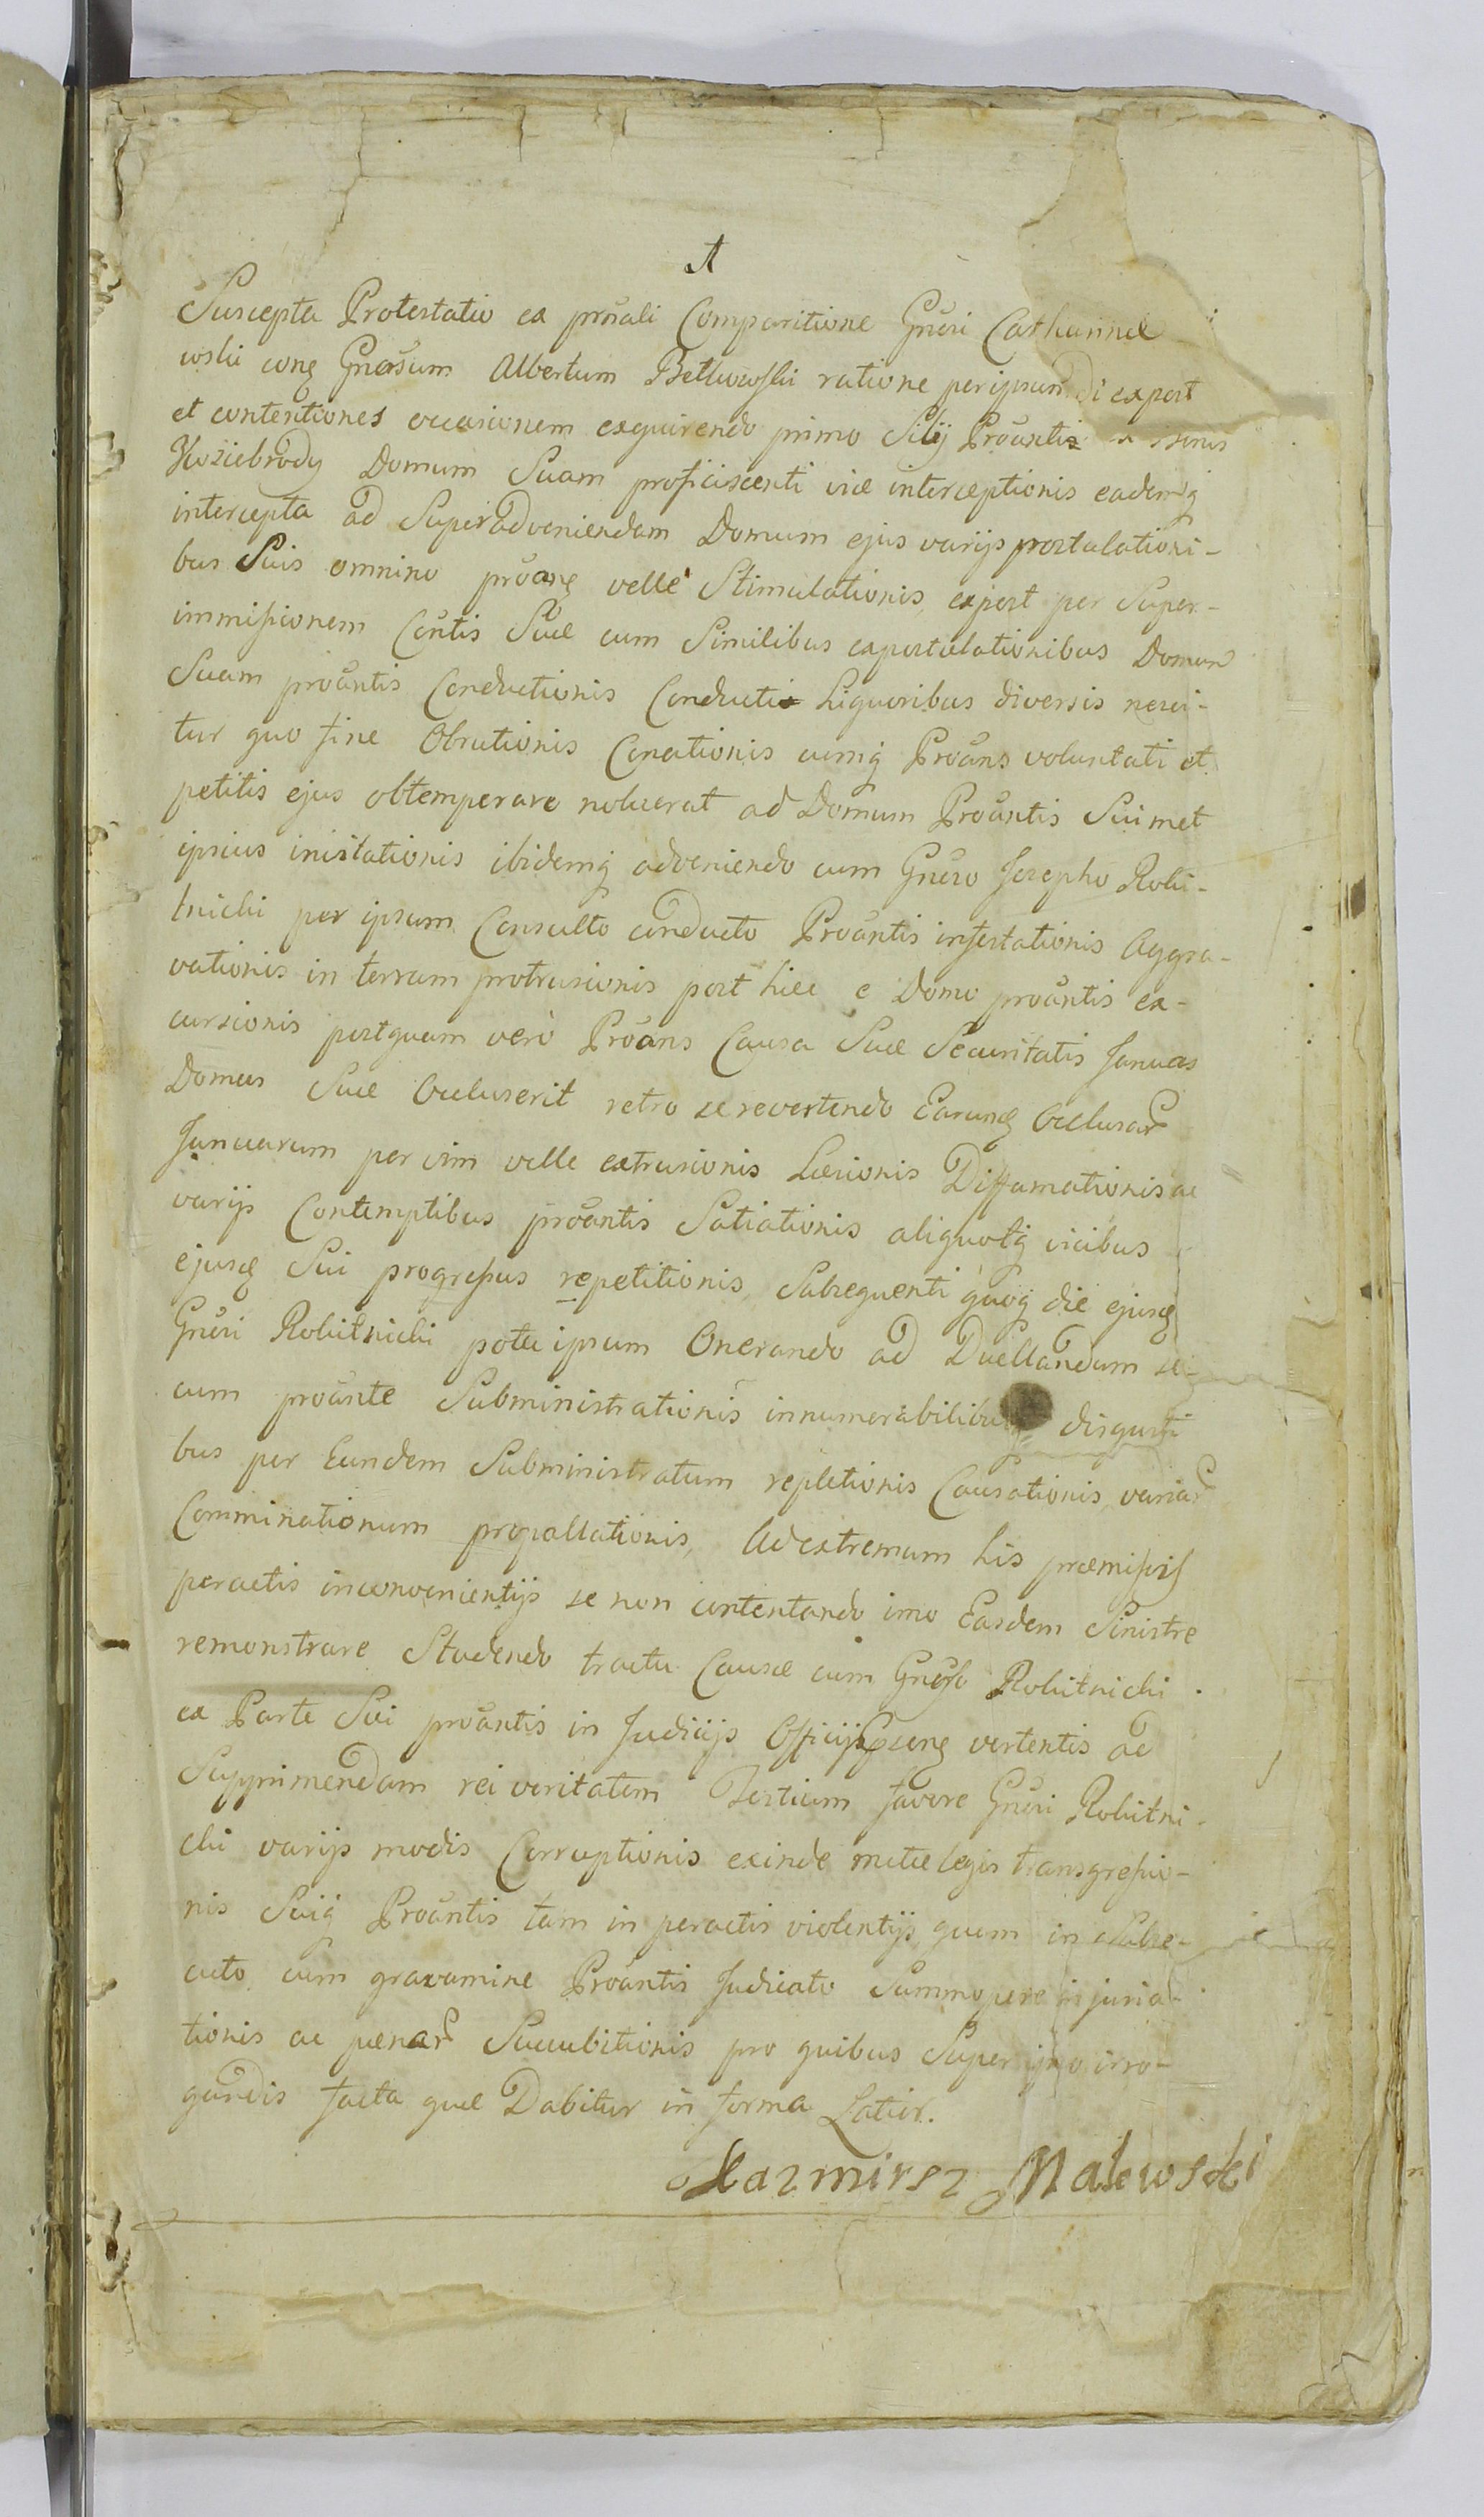 A
Suscepta Protestatio ex prsãli Comparitione Gnẽri Catharinæ
wski conq Gnẽrosum Albertum Betkowski ratione per ipsum di expost
et contentiones occasionem exquirendo primo Silij Proãntis
Koziebrody Domum Suam proficiscenti viæ interceptionis eademq
intercepta ad Superadveniendam Domum ejus varijs postulationi-
bus Suis omnino proãnq velle Stimulationis, expost per Super-
immissionem Contis Suæ cum Similibus expostulationibus Domum
Suam proãntis Conductionis Conducti Liquoribus diversis nesci-
tur quo fine Obrutionis Conationis cumq Proãns voluntati et
petitis ejus obtemperare noluerat ad Domum Proãntis Suimet
ipsius inistationis ibidemq adveniendo cum Gnẽro Josepho Roki-
tnicki per ipsum Consulto conducto Proãntis infestationis Aggra-
vationis in terram protrusionis post hæc e Domo proãntis ex-
cursionis postquam verò Proãns Causa Suæ Securitatis Januas
Domus Suæ Occluserit retro se revertendo Earunq Occlusar
Januarum per vim velle extrusionis Læsionis Diffamationis ac
varijs Contemptibus proãntis Satiationis aliquotq vicibus
ejusq Sui progressus repetitionis, Subsequenti quoq die ejusq
Gnẽri Rokitnicki potu ipsum Onerando ad Duellandum se-
cum proãnte Subministrationis innumerabilibu disgusti
bus per Eundem Subministratum repletionis Causationis, variar
Comminationum propallationis, Ad extremum his præmissis
peractis inconvenientijs se non contentando imo Easdem Sinistre
remonstrare Studendo tractu Causæ cum Gnẽrso Rokitnicki
ex Parte Sui proãntis in Judicijs Officijsq vertentis ad
Supprimendam rei veritatem Testium favore Gnẽri Rokitni-
cki varijs modis Corruptionis exinde metæ legis transgressio-
nis Suiq Proãntis tam in peractis violentijs quam in Subse-
cuto cum gravamine Proãntis Judicato Summopere injuria-
tionis ac pænar Succubitionis pro quibus Super ipso irro-
gandis facta quæ Dabitur in forma Latior.
Kazmirsz Malewski